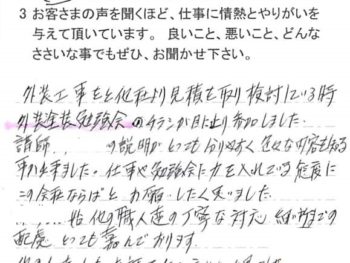 3 お客さまの声を聞くほど、仕事に情熱とやりがいを
与えて頂いています。 良いこと、悪いこと、どんな
ささいな事でもぜひ、お聞かせ下さい。
外装工事をと他社より見積を取り検討している時
外装塗装勉強会のチラシが目に止り参加しました。
講師 の説明がとても分りやすく色々な内容を知る
事が出来ました。仕事や勉強会に力を入れている態度に
この会社ならばとお願いしたく思いました。
始 他の職人達の丁寧な対応 細い所までの
配慮 とっても喜んでおります。